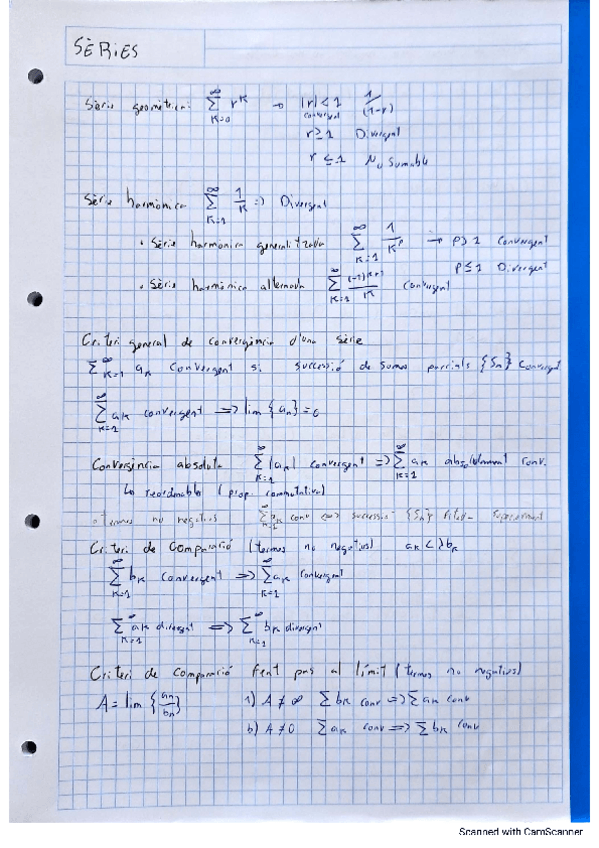 SÈRIES
Sèrie geomètrica: ∑_{K=0}^{∞} r^K → |r|<1 convergent 1/(1-r)
r≥1 Divergent
r≤1 No Sumable
Sèrie harmònica ∑_{K=1}^{∞} 1/K => Divergent
• Sèrie harmònica generalitzada ∑_{K=1}^{∞} 1/K^p → p>1 Convergent
p≤1 Divergent
• Sèrie harmònica alternada ∑_{K=1}^{∞} (-1)^{K+1}/K Convergent
Criteri general de convergència d'una sèrie
∑_{K=1}^{∞} a_K Convergent si successió de sumes parcials {S_n} Convergent
∑_{K=1}^{∞} a_K convergent => lim {a_n} = 0
Convergència absoluta ∑_{K=1}^{∞} |a_K| convergent => ∑_{K=1}^{∞} a_K absolutament conv.
↳ reordenable (prop. commutativa)
• termes no negatius ∑_{K=1}^{∞} b_K conv <=> successió {S_n} fitada superiorment
Criteri de Comparació (termes no negatius) a_K < λ b_K
∑_{K=1}^{∞} b_K convergent => ∑_{K=1}^{∞} a_K convergent
∑_{K=1}^{∞} a_K divergent => ∑_{K=1}^{∞} b_K divergent
Criteri de comparació fent pas al límit (termes no negatius)
A = lim {a_n/b_n} 1) A ≠ ∞ ∑ b_K conv => ∑ a_K conv
b) A ≠ 0 ∑ a_K conv => ∑ b_K conv
Scanned with CamScanner